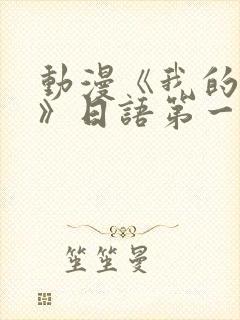 動漫《我的
》日語第一
笙笙曼